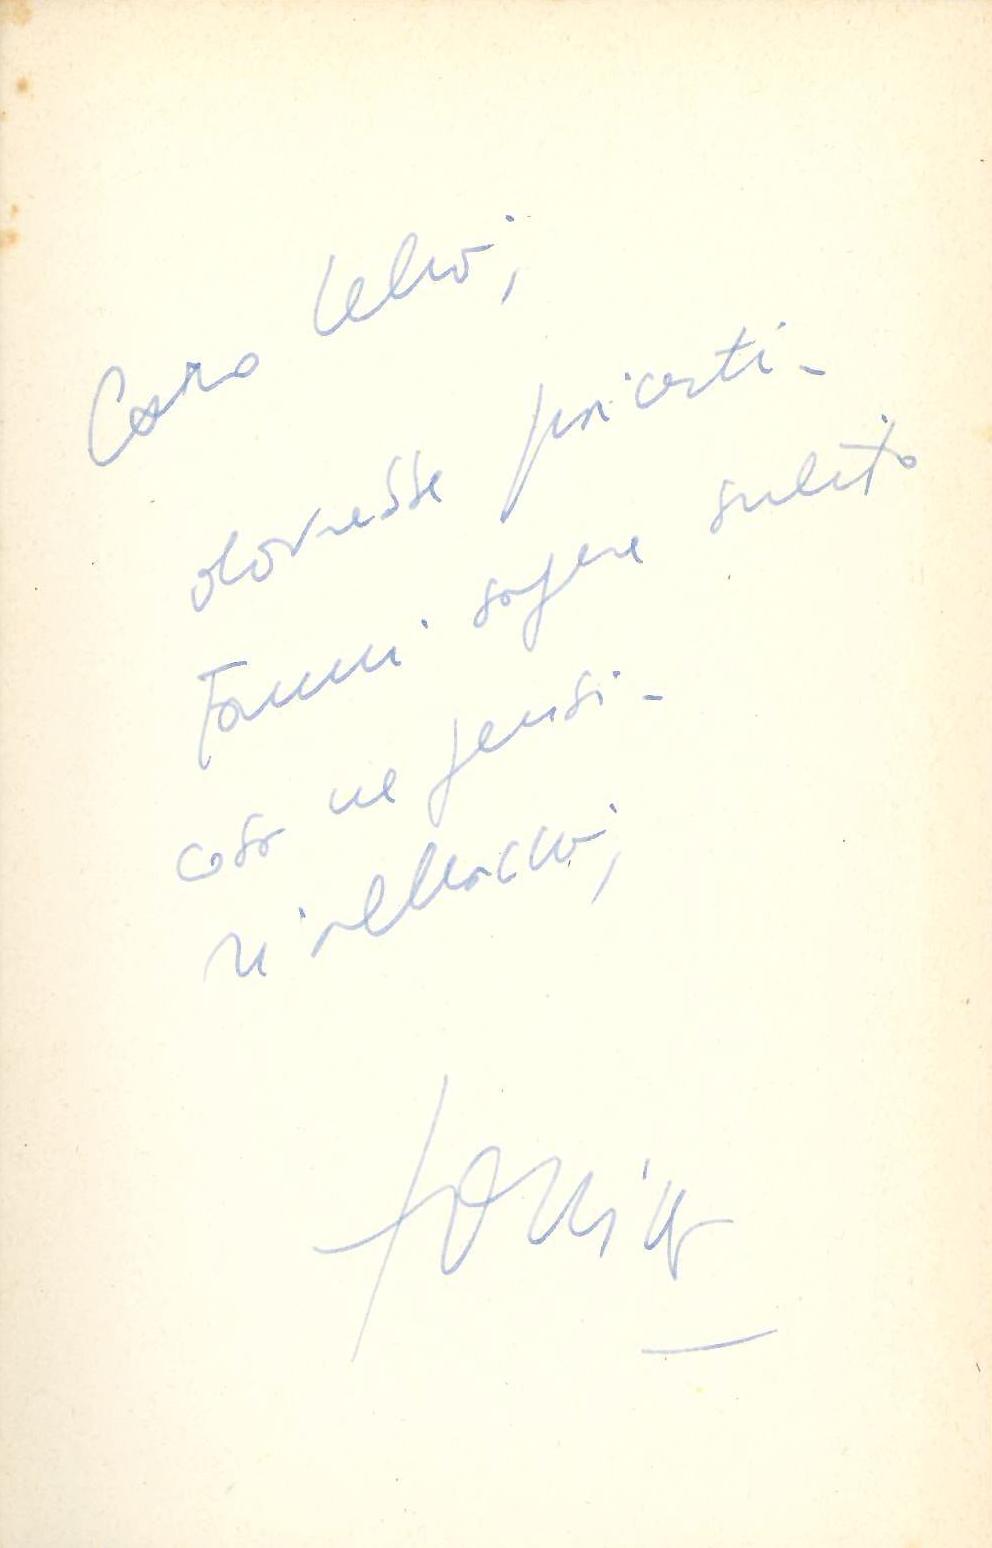 Caro Lelio,
dovresse piacerti -
Fammi sapere subito
cosa ne pensi -
Ti abbraccio,